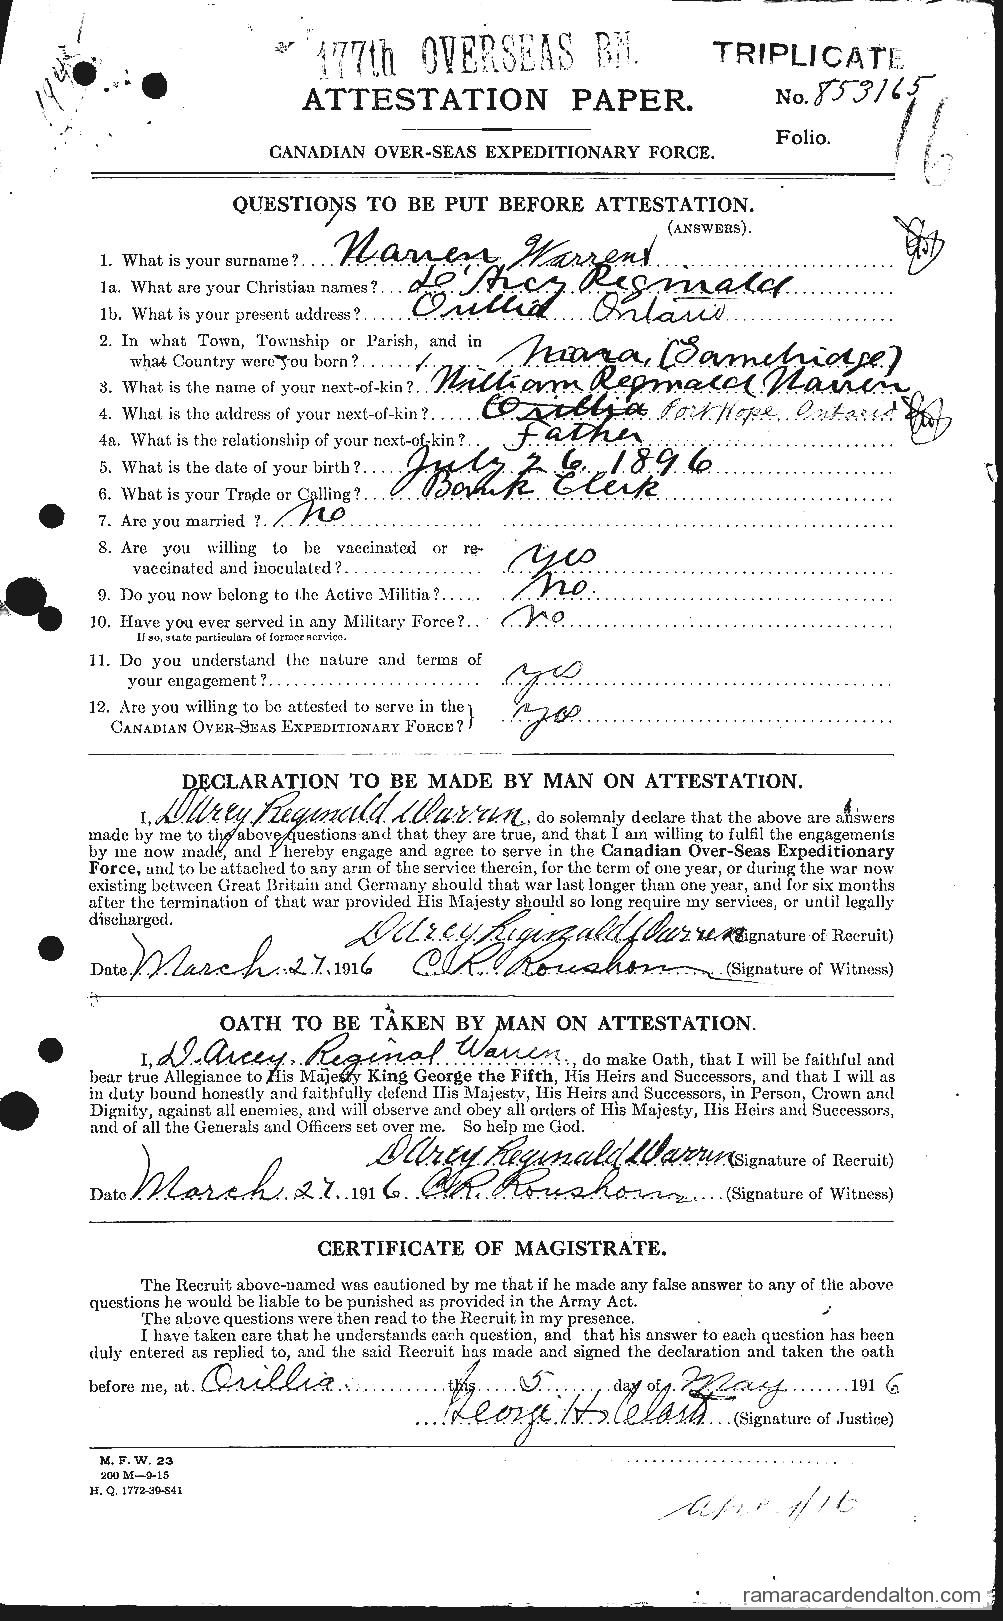 177th OVERSEAS BN.
TRIPLICATE
ATTESTATION PAPER.
No. 853165
Folio.
16
CANADIAN OVER-SEAS EXPEDITIONARY FORCE.
QUESTIONS TO BE PUT BEFORE ATTESTATION.
(ANSWERS).
1. What is your surname?.... Warren Warren
1a. What are your Christian names?... D'Arcy Reginald
1b. What is your present address?..... Orillia Ontario
2. In what Town, Township or Parish, and in
what Country were you born?........ Mara, (Gamebridge)
3. What is the name of your next-of-kin?.. William Reginald Warren
4. What is the address of your next-of-kin?..... Orillia Port Hope, Ontario
4a. What is the relationship of your next-of-kin?... Father
5. What is the date of your birth?..... July 26, 1896
6. What is your Trade or Calling?.... Bank Clerk
7. Are you married ?... No
8. Are you willing to be vaccinated or re-
vaccinated and inoculated?................ yes
9. Do you now belong to the Active Militia?..... No.
10. Have you ever served in any Military Force?.. No
If so, state particulars of former service.
11. Do you understand the nature and terms of
your engagement?......................... yes
12. Are you willing to be attested to serve in the
CANADIAN OVER-SEAS EXPEDITIONARY FORCE? } yes
DECLARATION TO BE MADE BY MAN ON ATTESTATION.
I, D'Arcy Reginald Warren, do solemnly declare that the above are answers
made by me to the above questions and that they are true, and that I am willing to fulfil the engagements
by me now made, and I hereby engage and agree to serve in the Canadian Over-Seas Expeditionary
Force, and to be attached to any arm of the service therein, for the term of one year, or during the war now
existing between Great Britain and Germany should that war last longer than one year, and for six months
after the termination of that war provided His Majesty should so long require my services, or until legally
discharged.
D'Arcy Reginald Warren (Signature of Recruit)
Date March 27. 1916 C. R. (Signature of Witness)
OATH TO BE TAKEN BY MAN ON ATTESTATION.
I, D. Arcey. Reginal Warren, do make Oath, that I will be faithful and
bear true Allegiance to His Majesty King George the Fifth, His Heirs and Successors, and that I will as
in duty bound honestly and faithfully defend His Majesty, His Heirs and Successors, in Person, Crown and
Dignity, against all enemies, and will observe and obey all orders of His Majesty, His Heirs and Successors,
and of all the Generals and Officers set over me. So help me God.
D'Arcy Reginald Warren (Signature of Recruit)
Date March 27. 1916. C. R. (Signature of Witness)
CERTIFICATE OF MAGISTRATE.
The Recruit above-named was cautioned by me that if he made any false answer to any of the above
questions he would be liable to be punished as provided in the Army Act.
The above questions were then read to the Recruit in my presence.
I have taken care that he understands each question, and that his answer to each question has been
duly entered as replied to, and the said Recruit has made and signed the declaration and taken the oath
before me, at Orillia this 5 day of May 1916
George H. Clark (Signature of Justice)
M. F. W. 23
200 M—9-15
H. Q. 1772-39-841
ramaracardendalton.com